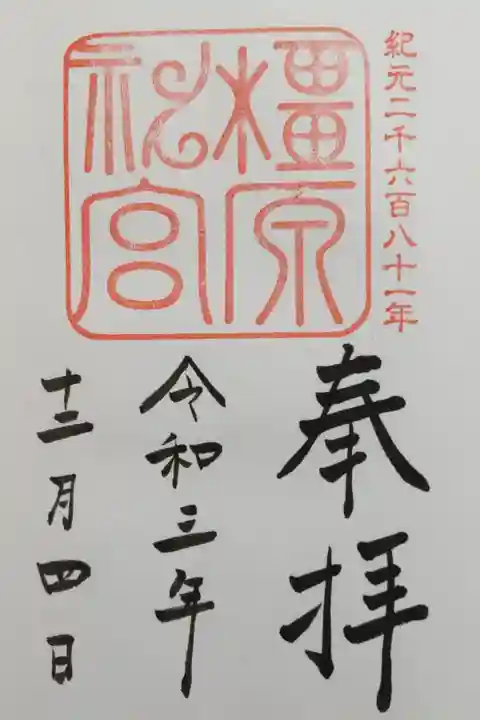 紀元二千六百八十一年
橿原
神宮
奉拝
令和三年
十二月四日